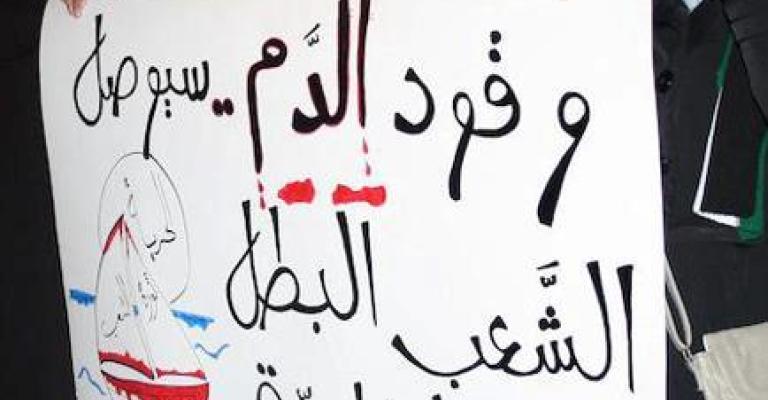 وقود الدَّم سيوصل
الشَّعب البطل
حرية